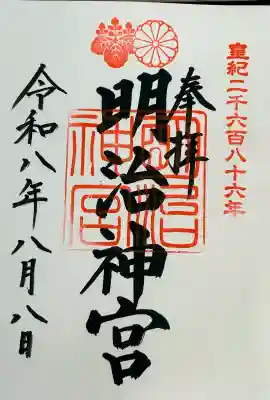 皇紀二千六百八十六年
奉拝
明治神宮
明治神宮
令和八年八月八日